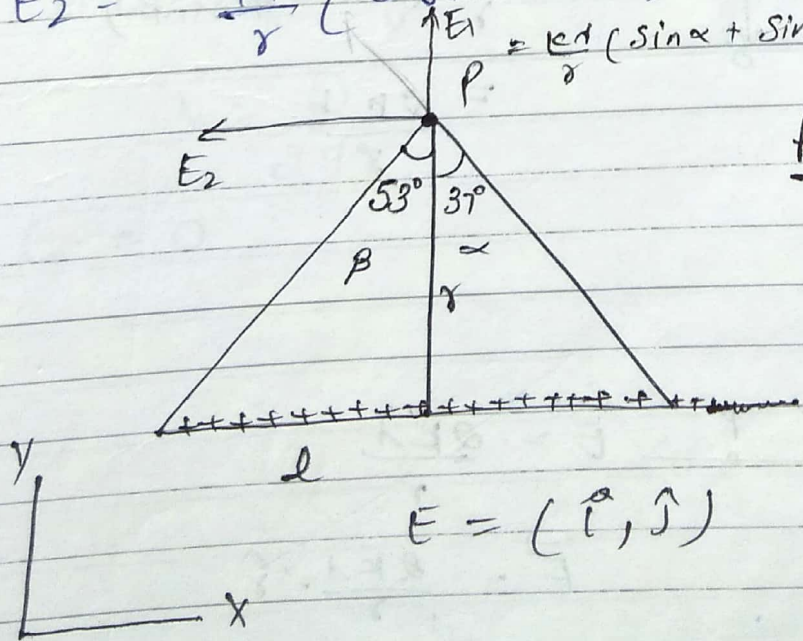 E2 =
r (
E1
= kλ/r (Sinα + Sin
P.
E2
53° 37°
β α
r
+ + + + + + + + + + + + + + + + + +
l
y
E = (î, ĵ)
X